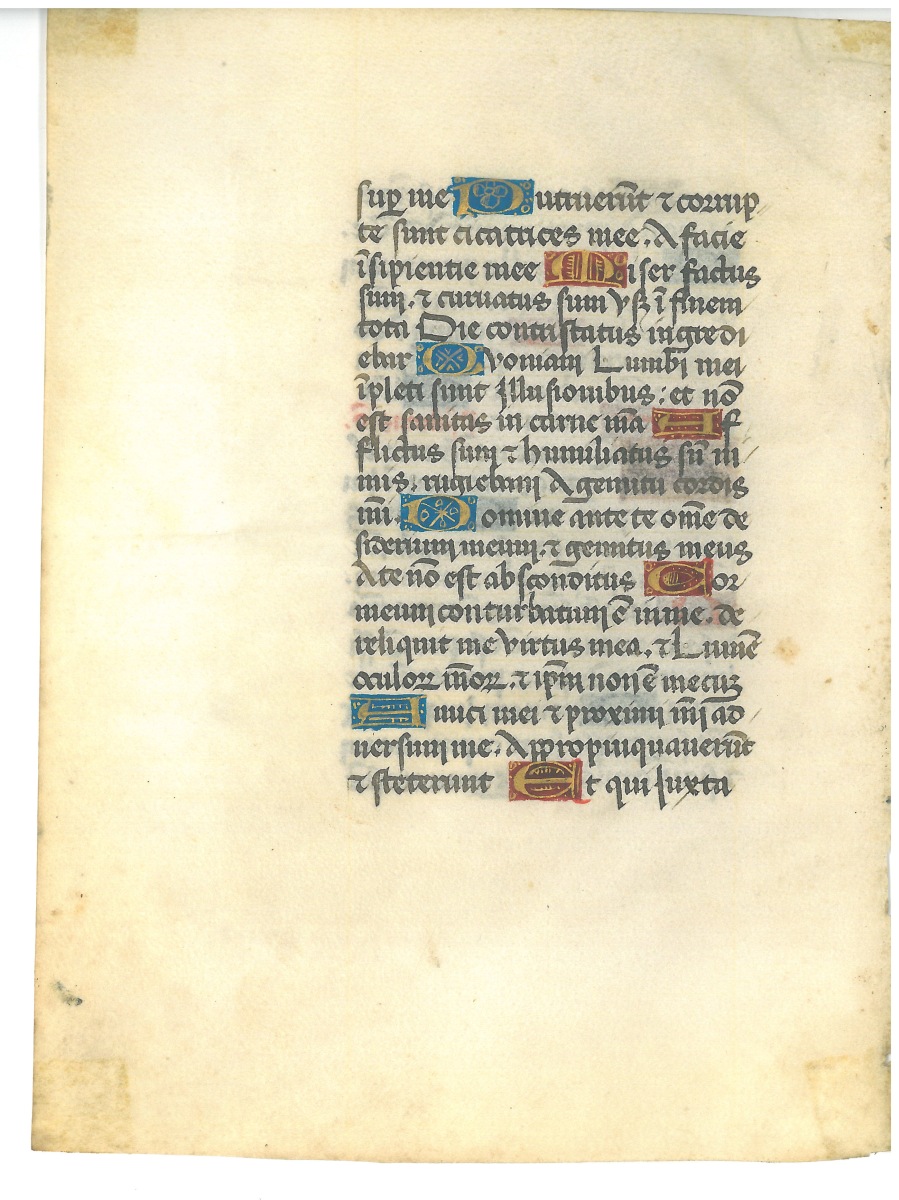 suꝑ me Putruerūt ⁊ corrup
te sunt cicatrices mee. A facie
īsipientie mee Miser factus
sum. ⁊ curuatus sum vsꝫ ī finem
tota Die contristatus ingredi
ebar Qvoniam Lumbi mei
īpleti sunt Illusionibus: et nō
est sanitas in carne m̄a Af
flictus sum ⁊ humiliatus sū ni
mis. rugiebam A gemitu cordis
mī. Domine ante te om̄e de
siderium meum. ⁊ gemitus meus
A te nō est absconditus Cor
meum conturbatum ē in me. de
reliquit me virtus mea. ⁊ Lumē
oculoꝝ m̄oꝝ. ⁊ ip̄m non ē mecuꝫ
Amici mei ⁊ proximi mī ad
uersum me. Appropinquauerūt
⁊ steterunt Et qui Iuxta